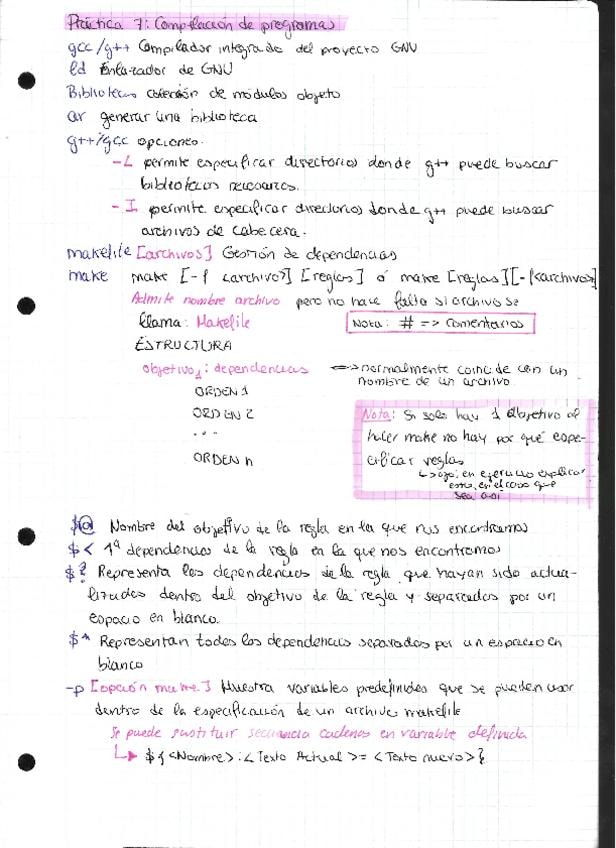 Práctica 7: Compilación de programas
gcc/g++ Compilador integrado del proyecto GNU
ld Enlazador de GNU
Bibliotecas colección de módulos objeto
ar generar una biblioteca
g++/gcc opciones.
-L permite especificar directorios donde g++ puede buscar
bibliotecas necesarias.
-I permite especificar directorios donde g++ puede buscar
archivos de cabecera.
makefile [archivos] Gestión de dependencias
make make [-f <archivo>] [reglas] ó make [reglas][-f<archivo>]
Admite nombre archivo pero no hace falta si archivo se
llama: Makefile
Nota: # => comentarios
ESTRUCTURA
objetivo: dependencias => normalmente coincide con un
nombre de un archivo.
ORDEN 1
ORDEN 2
...
ORDEN n
Nota: Si solo hay 1 objetivo al
hacer make no hay por qué espe-
cificar reglas
ojo, en ejercicio explicar
esto, en el caso que
sea así
$@ Nombre del objetivo de la regla en la que nos encontramos
$< 1ª dependencias de la regla en la que nos encontramos
$? Representa las dependencias de la regla que hayan sido actua-
lizadas dentro del objetivo de la regla y separadas por un
espacio en blanco.
$^ Representan todas las dependencias separadas por un espacio en
blanco
-p [opción make] Muestra variables predefinidas que se pueden usar
dentro de la especificación de un archivo makefile
Se puede sustituir secuencia cadenas en variable definida
$ { <Nombre> : < Texto Actual > = < Texto nuevo > }